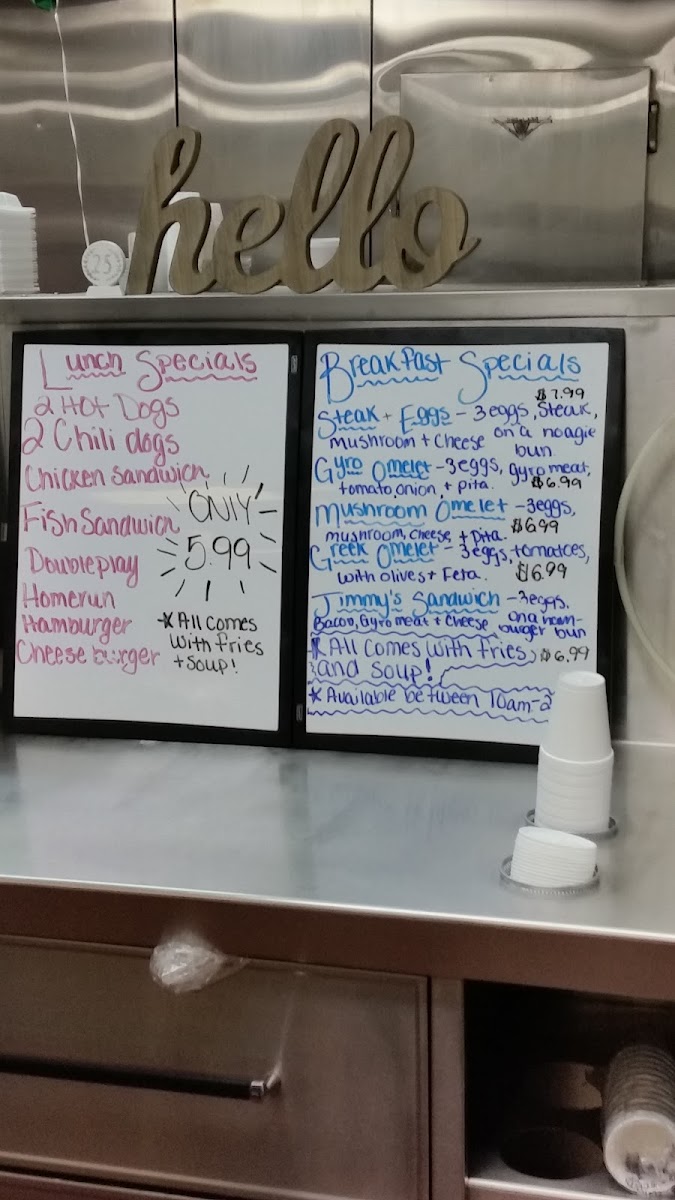 hello
25
Lunch Specials
2 Hot Dogs
2 Chili dogs
Chicken Sandwich
Fish Sandwich
Doubleplay
Homerun
Hamburger
Cheese burger
ONLY
5.99
* All comes
with fries
+ soup!
Breakfast Specials
$7.99
Steak + Eggs - 3 eggs, Steak,
mushroom + cheese on a noagie
bun
Gyro Omelet - 3 eggs, gyro meat,
tomato, onion, + pita. $6.99
Mushroom Omelet - 3 eggs,
mushroom, cheese, + pita. $6.99
Greek Omelet - 3 eggs, tomatoes,
with olives + Feta. $6.99
Jimmy's Sandwich - 3 eggs,
Bacon, Gyro meat + cheese on a ham-
burger bun
* All comes with fries $6.99
and soup!
* Available between 10am-2